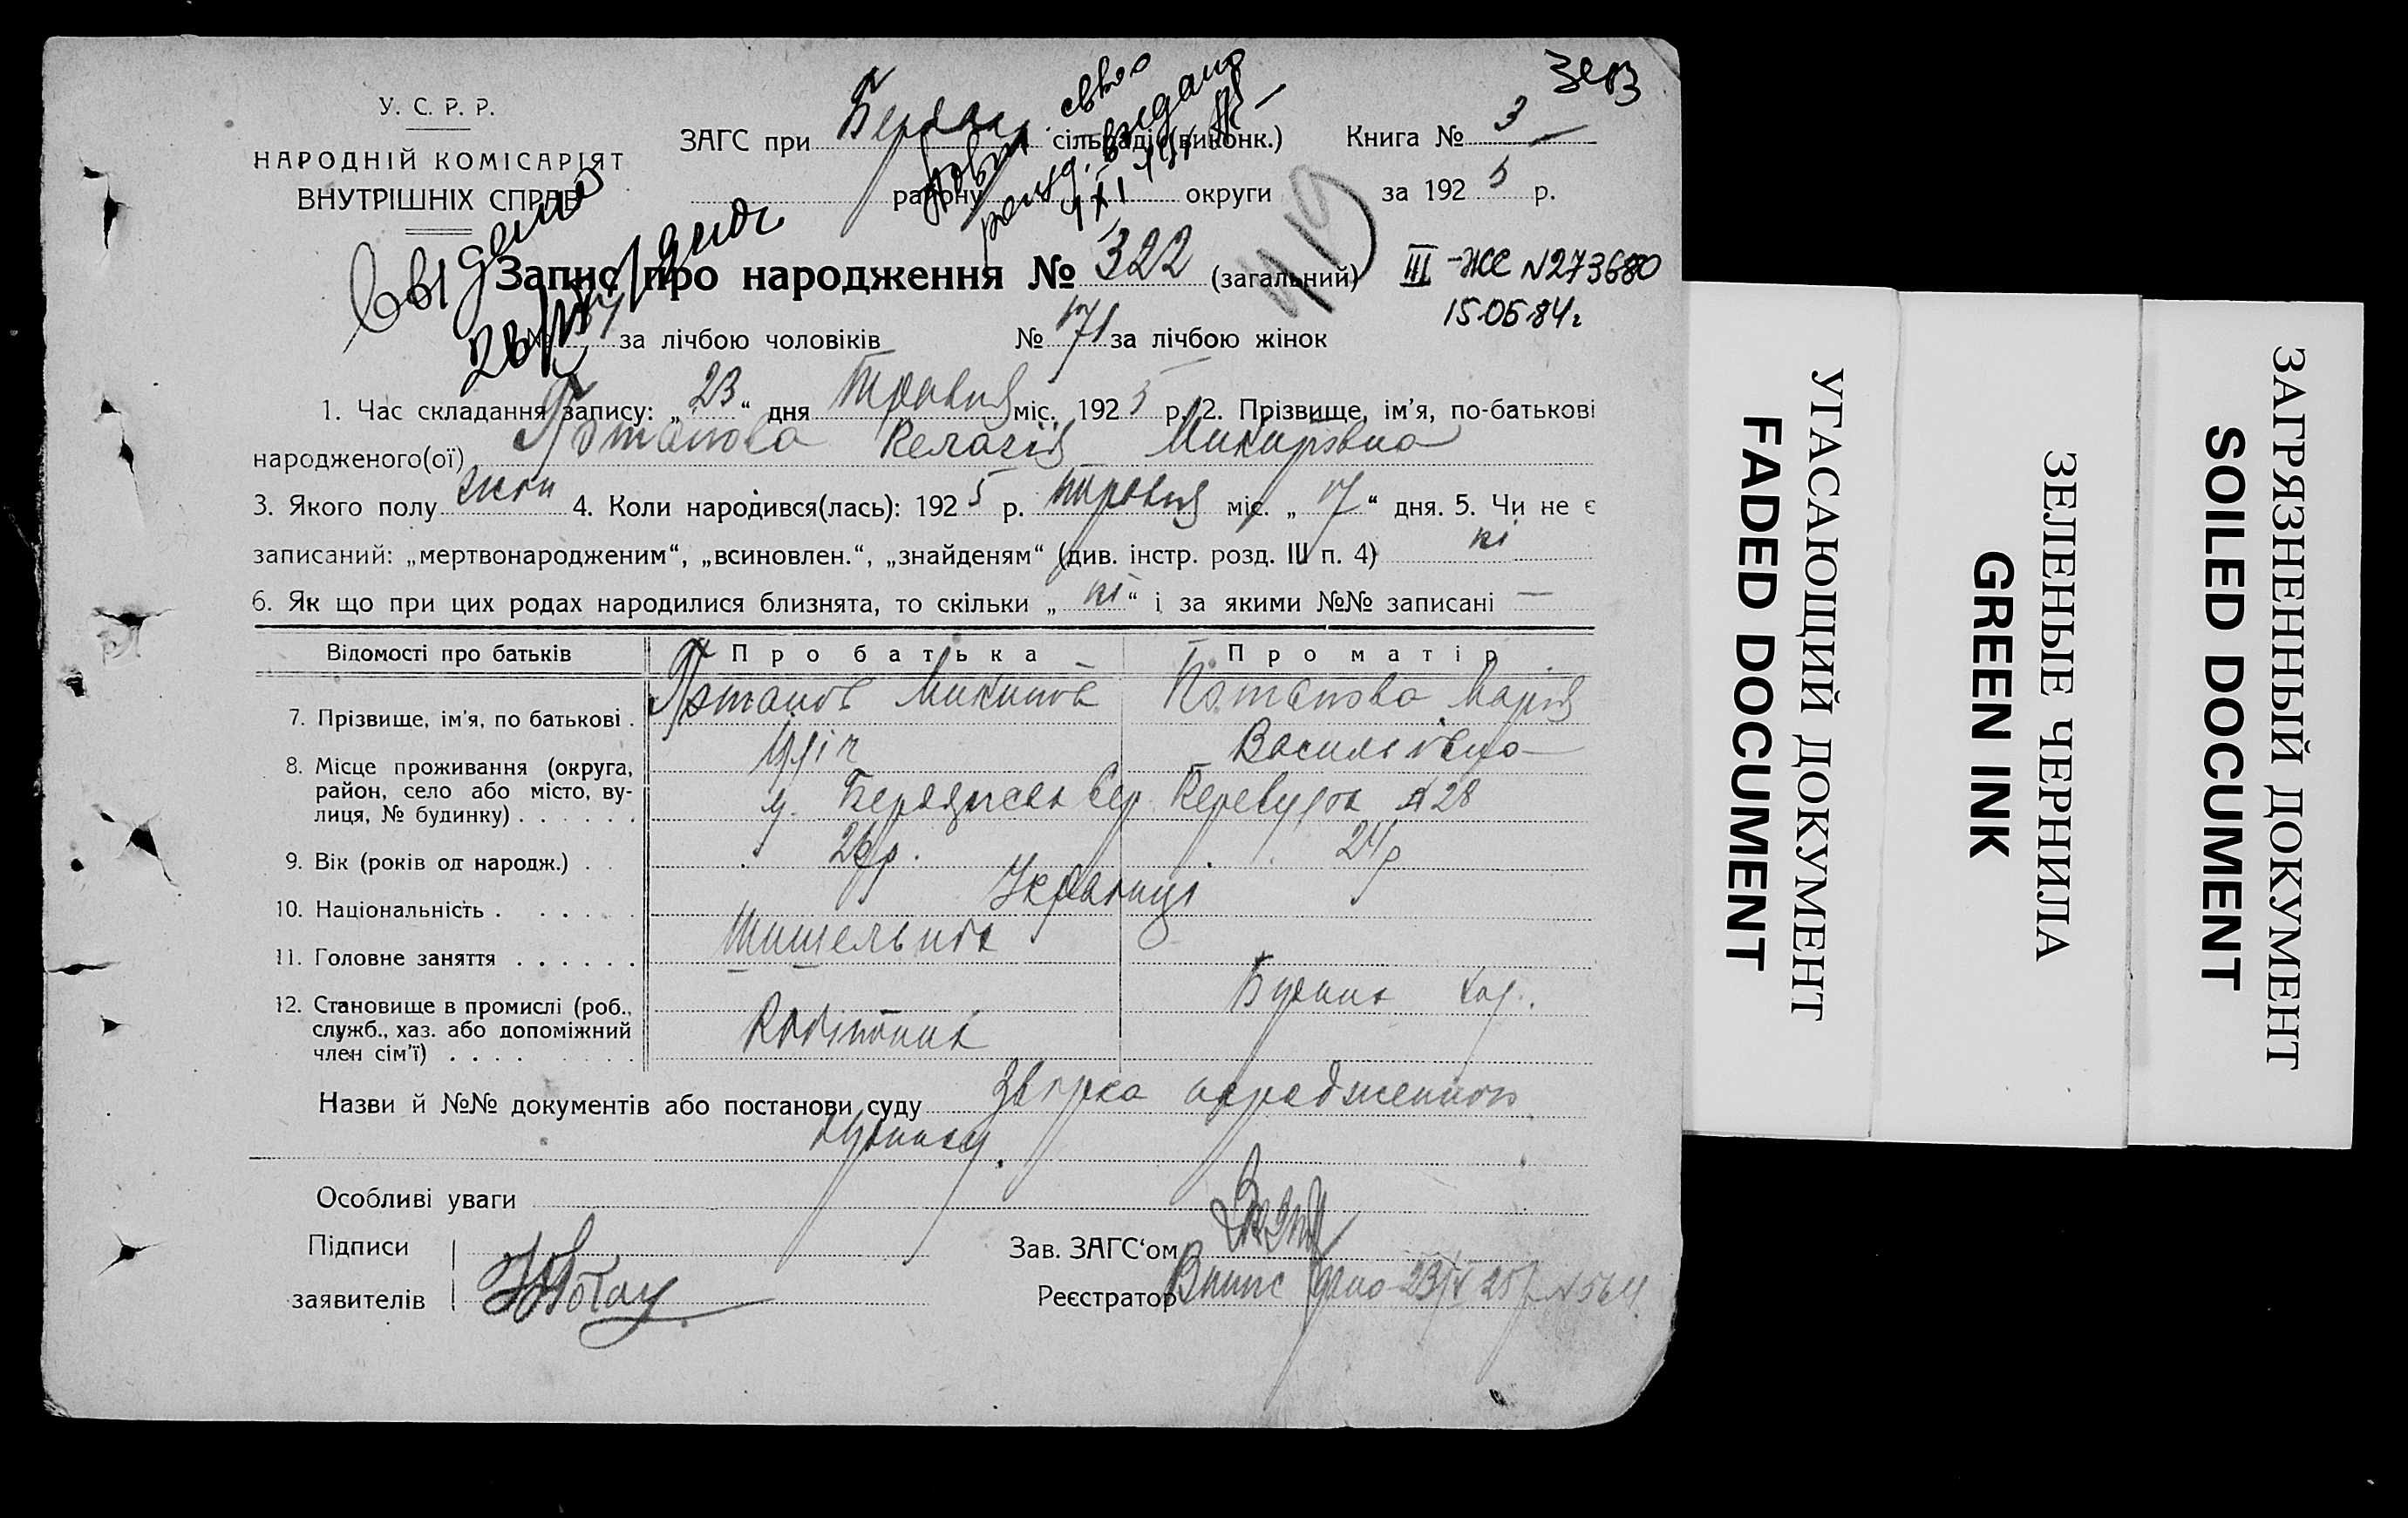 Зев
У. С. Р. Р.
НАРОДНІЙ КОМІСАРІЯТ
ВНУТРІШНІХ СПРАВ
ЗАГС при сільради (виконк.)
району округи
Книга № 3
за 1925 р.
Запис про народження № 322 (загальний)
III-ЖС N273680
15.05.84г
за лічбою чоловіків № 171 за лічбою жінок
1. Час складання запису: „23“ дня Травня міс. 1925 р. 2. Прізвище, ім'я, по-батькові
народженого(ої) Потапова Пелагія Микитовна
3. Якого полу жін 4. Коли народився(лась): 1925 р. травня міс. „17“ дня. 5. Чи не є
записаний: „мертвонародженим“, „всиновлен.“, „знайденям“ (див. інстр. розд. III п. 4) ні
6. Як що при цих родах народилися близнята, то скільки „ні“ і за якими №№ записані —
Відомості про батьків Про батька Про матір
7. Прізвище, ім'я, по батькові . Потапов Микита Потапова Марія
Ілліч Василівна
8. Місце проживання (округа,
район, село або місто, ву-
лиця, № будинку) . . . . . . м. Бердянськ Переулок № 28
9. Вік (років од народж.) . . 26 р. 24 р
10. Національність . . . . . Українці
11. Головне заняття . . . . . .
12. Становище в промислі (роб.,
служб., хаз. або допоміжний
член сім'ї) . . . . Робітник
Назви й №№ документів або постанови суду
Особливі уваги
Підписи
заявителів
Зав. ЗАГС'ом
Реєстратор Випис 23/V 25 р N564
УГАСАЮЩИЙ ДОКУМЕНТ
FADED DOCUMENT
ЗЕЛЕНЫЕ ЧЕРНИЛА
GREEN INK
ЗАГРЯЗНЕННЫЙ ДОКУМЕНТ
SOILED DOCUMENT